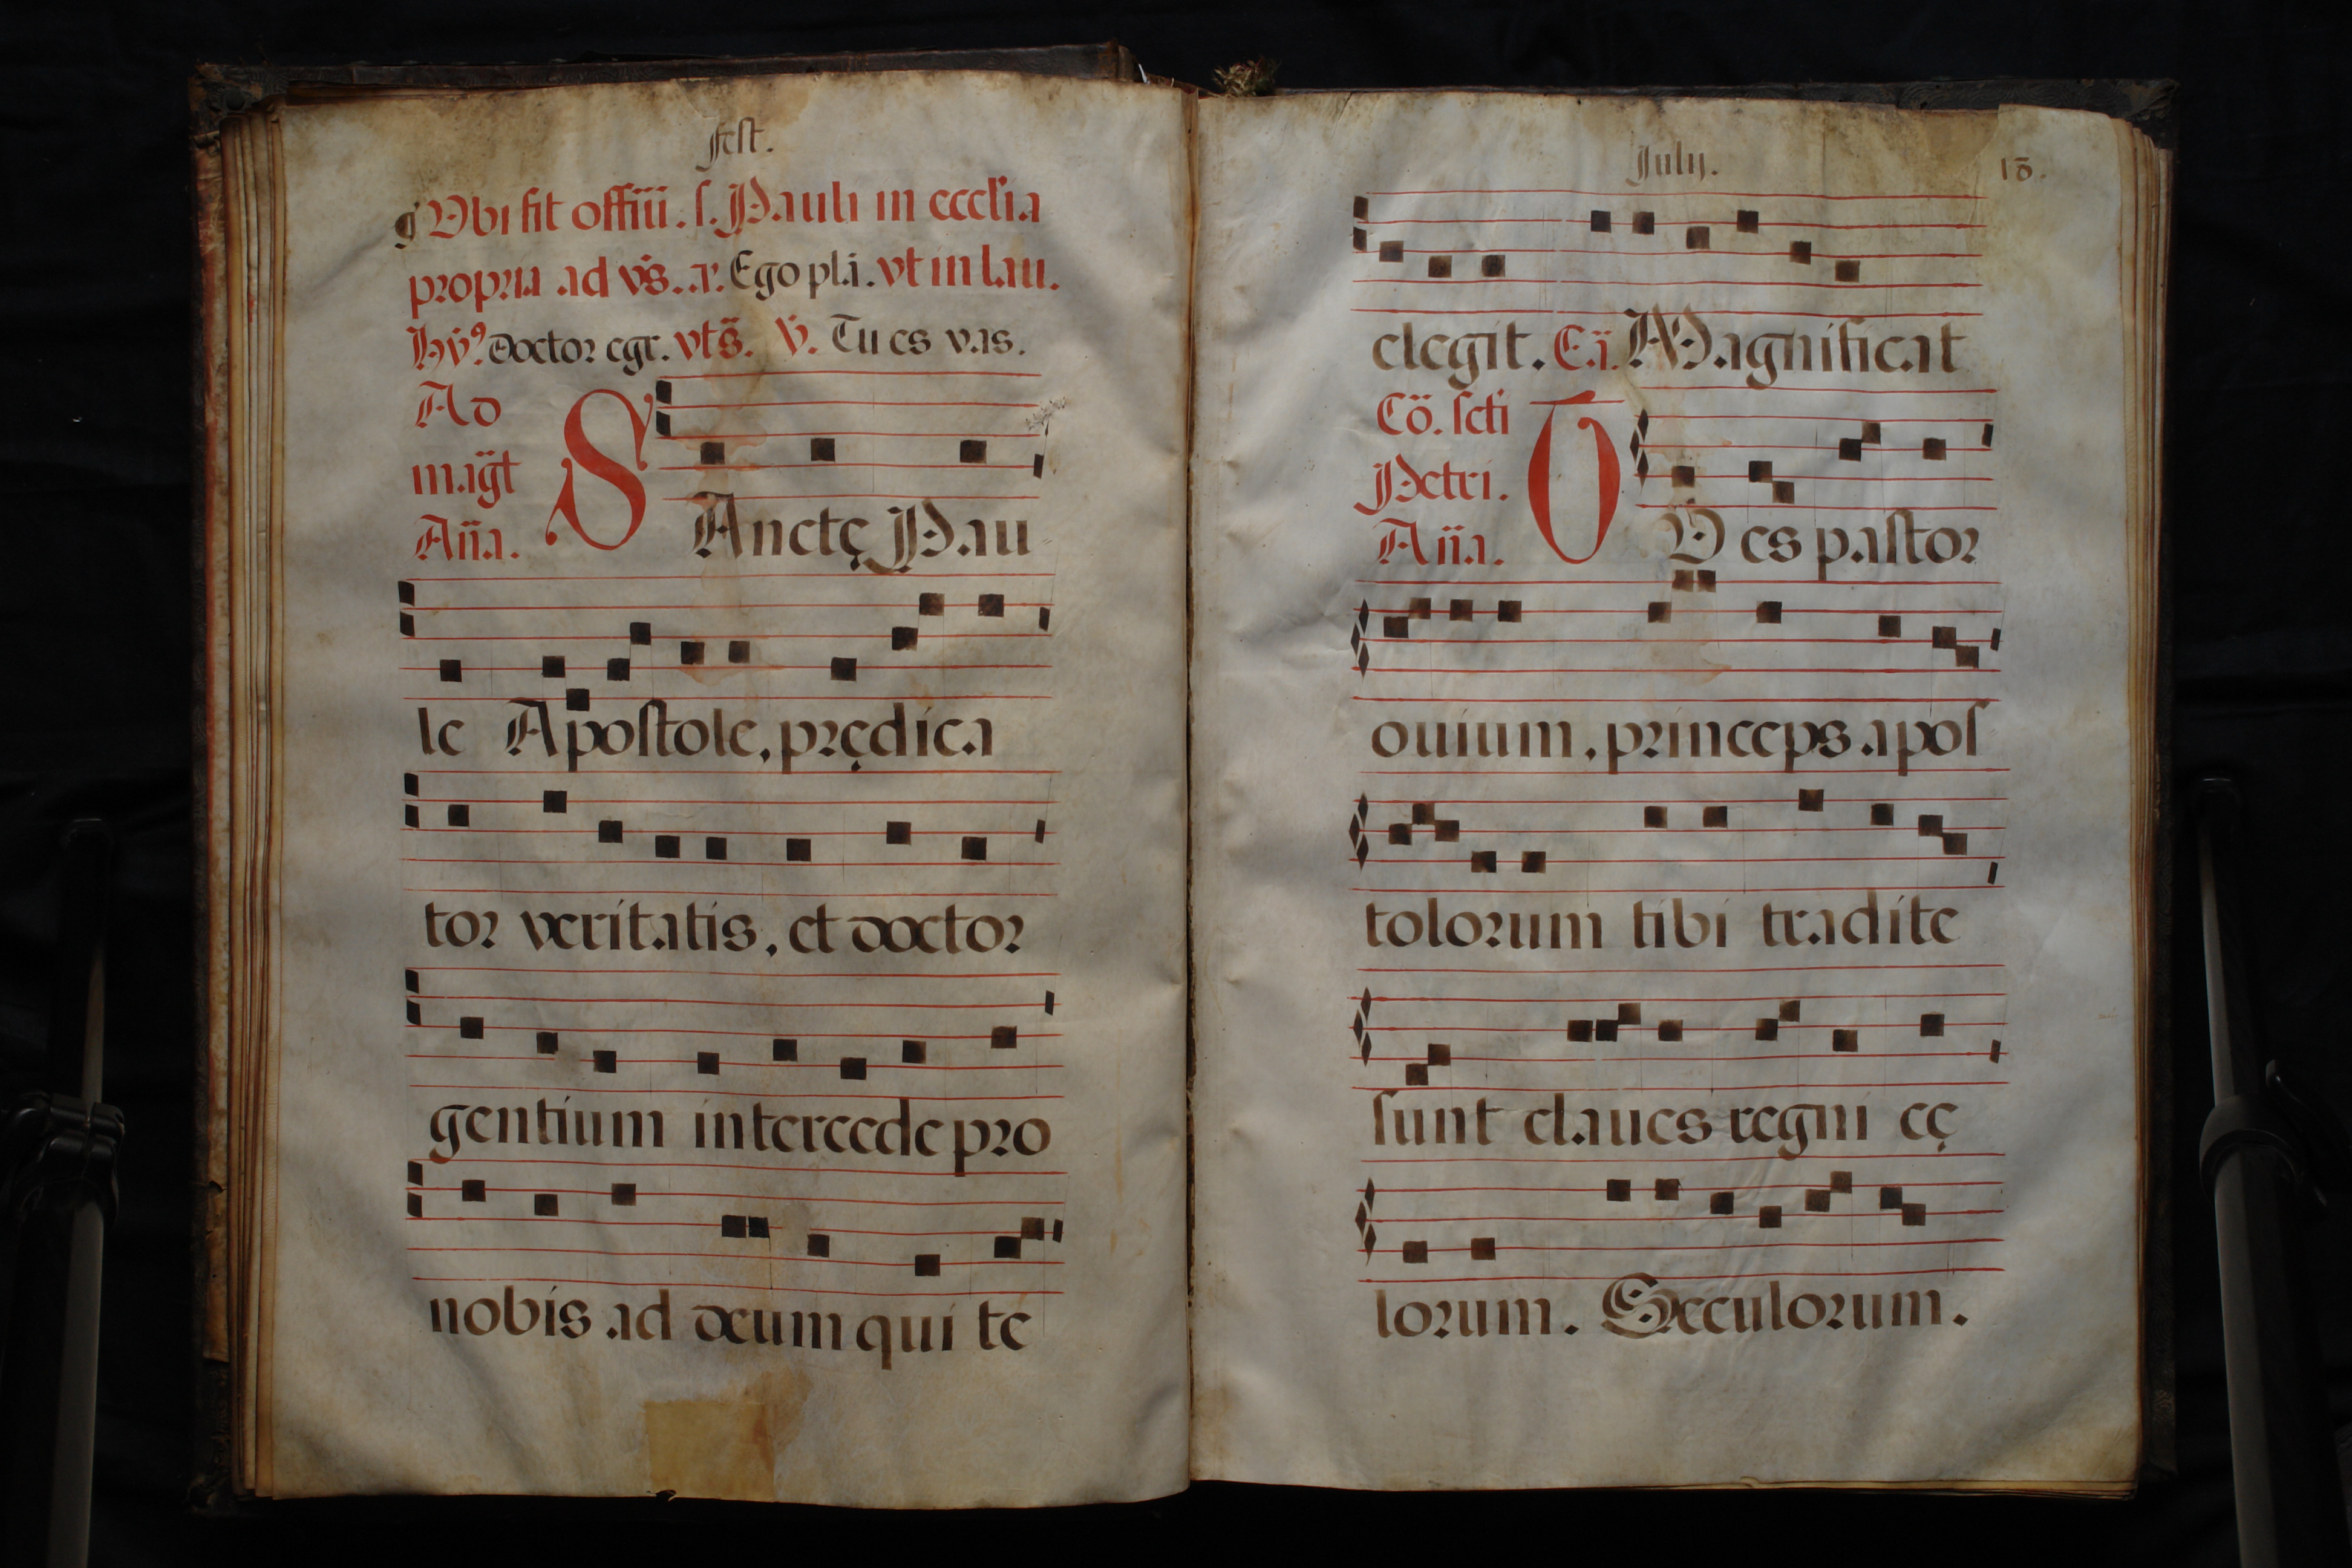 fest.
Vbi fit offiü. s. Pauli in ecclïa
propria ad vs̈. a. Ego plä. vt in lau.
Hÿ⁹. doctor egr. vts̈. ℣. Tu es vas.
Ad
mag̈t
Aña.
SAnctę Pau
le Apostole, prędica
tor veritatis, et doctor
gentium intercede pro
nobis ad deum qui te
July. 18.
elegit. Eä. Magnificat
Cö. scti
Petri.
Aña.
TV es pastor
ouium, princeps apos
tolorum tibi tradite
sunt claues regni cę
lorum. Seculorum.